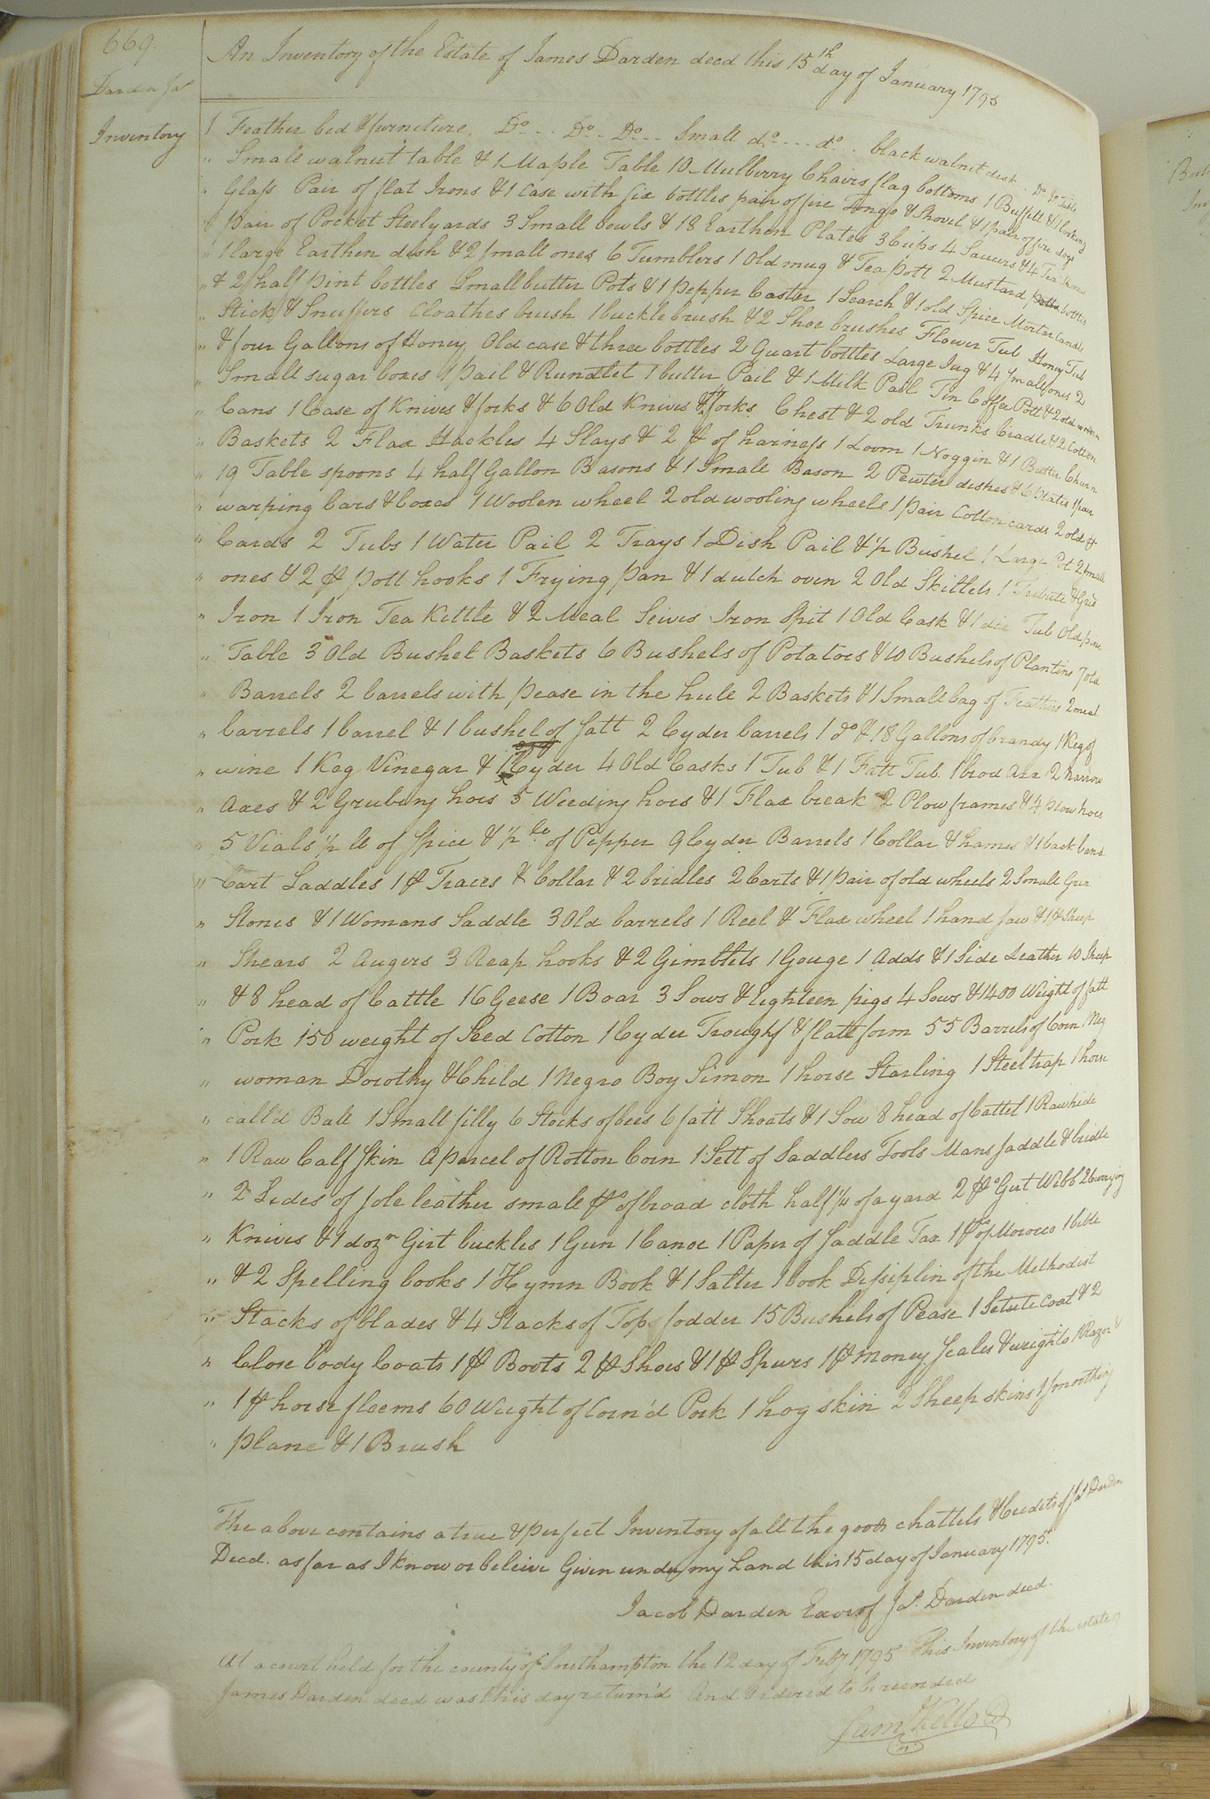 669.
Darden Jas
Inventory
An Inventory of the Estate of James Darden decd this 15th day of January 1795
1 Feather bed & furneture, Do... Do.. Do... Small do.... do. black walnut desk
" Small walnut table & 1 Maple Table 10 Mulberry Chairs flag bottoms 1 Buffitt & 1 looking
" Glass Pair of flat Irons & 1 case with six bottles pair of fire Tongs & Shovel & 1 pair of fire dogs
" pair of Pocket Steelyards 3 Small bowls & 18 Earthen Plates 3 Cups 4 Saucers & 4 Tea
" 1 large Earthen dish & 2 small ones 6 Tumblers 1 Old mug & Tea pott 2 Mustard bottles
" & 2 half pint bottles Small butter Pots & 1 pepper Castor 1 Search & 1 old Spice Morter Candle
" Stick & Snuffers Cloathes brush 1 buckle brush & 2 Shoe brushes Flower Tub Honey Tub
" & four Gallons of Honey Old case & three bottles 2 Quart bottles Large Jug & 4 small ones 2
" Small sugar boxes 1 pail & Rundlet 1 butter Pail & 1 Milk Pail Tin Coffee Pott & 2 old
" Cans 1 Case of Knives & forks & 6 Old Knives & forks Chest & 2 old Trunks Cradle & 2 Cotton
" Baskets 2 Flax Hackles 4 Slays & 2 pr of harness 1 Loom 1 Noggin & 1 Butter Churn
" 19 Table spoons 4 half Gallon Basons & 1 Small Bason 2 Pewter dishes & 6 Plates 1 pair
" warping bars & boxes 1 Woolen wheel 2 old wooling wheels 1 pair Cotton cards 2 old pr
" Cards 2 Tubs 1 Water Pail 2 Trays 1 Dish Pail & 1/2 Bushel 1 Large Pot 2 small
" ones & 2 pr pott hooks 1 Frying pan & 1 dutch oven 2 Old Skillets 1 & Grid
" Iron 1 Iron Tea Kettle & 2 Meal Seivs Iron Spit 1 Old Cask & 1 Tub Old pine
" Table 3 Old Bushel Baskets 6 Bushels of Potatoes & 10 Bushels of Plantins 7 old
" Barrels 2 barrels with pease in the hule 2 Baskets & 1 Small bag of Feathers 2 meal
" barrels 1 barrel & 1 bushel of salt 2 Cyder barrels 1 do & 18 Gallons of brandy 1 Keg of
" wine 1 Keg Vinegar & 1 Cyder 4 Old Casks 1 Tub & 1 Fatt Tub. 1 brod axe 2 narrow
" axes & 2 Grubing hoes 5 Weeding hoes & 1 Flax break 2 Plow frames & 4 plow hoes
" 5 Vials 1/2 lb of spice & 1/2 lb of Pepper 9 Cyder Barrels 1 Collar & hames & 1 back band
" Cart Saddles 1 pr Traces & Collar & 2 bridles 2 Carts & 1 pair of old wheels 2 Small Grin
" Stones & 1 Womans Saddle 3 Old barrels 1 Reel & Flax wheel 1 hand saw & 1 pr Sheep
" Shears 2 Augers 3 Reap hooks & 2 Gimblets 1 Gouge 1 Adds & 1 Side Leather 10 Sheep
" & 8 head of Cattle 16 Geese 1 Boar 3 Sows & Eighteen pigs 4 Sows & 1400 Weight of fatt
" Pork 150 weight of Seed Cotton 1 Cyder Trough & platt form 55 Barrels of Corn Neg
" woman Dorothy & Child 1 Negro Boy Simon 1 horse Starling 1 Steel trap 1 horse
" call'd Ball 1 Small filly 6 Stocks of bees 6 fatt Shoats & 1 Sow 8 head of Cattel 1 Rawhide
" 1 Raw Calf skin A parcel of Rotton Corn 1 Sett of Saddlers Tools Mans saddle & bridle
" 2 Sides of sole leather small ps of broad cloth half 1/4 of a yard 2 ps Girt Webb 2 Currying
" Knives & 1 dozn Girt buckles 1 Gun 1 Canoe 1 Paper of saddle Tax 1 ps of Morocco 1 bible
" & 2 Spelling books 1 Hymn Book & 1 Salter 1 book Dissiplin of the Methodist
" Stacks of blades & 4 Stacks of Top fodder 15 Bushels of Pease 1 Coat & 2
" Close body Coats 1 pr Boots 2 pr Shoes & 1 pr Spurs 1 pr money scales & weights 1 Razor &
" 1 pr horse fleems 60 Weight of Corn'd Pork 1 hog skin 2 Sheep skins 1 smoothing
" plane & 1 Brush
The above contains a true & perfect Inventory of all the goods chattels & Credits of Jas Darden
Decd. as far as I know or beleive Given under my hand this 15 day of January 1795.
Jacob Darden Exor of Jas. Darden decd.
At a court held for the county of Southampton the 12 day of Feby 1795 This Inventory of the estate of
James Darden decd was this day return'd And Ordered to be recorded
Saml Kello